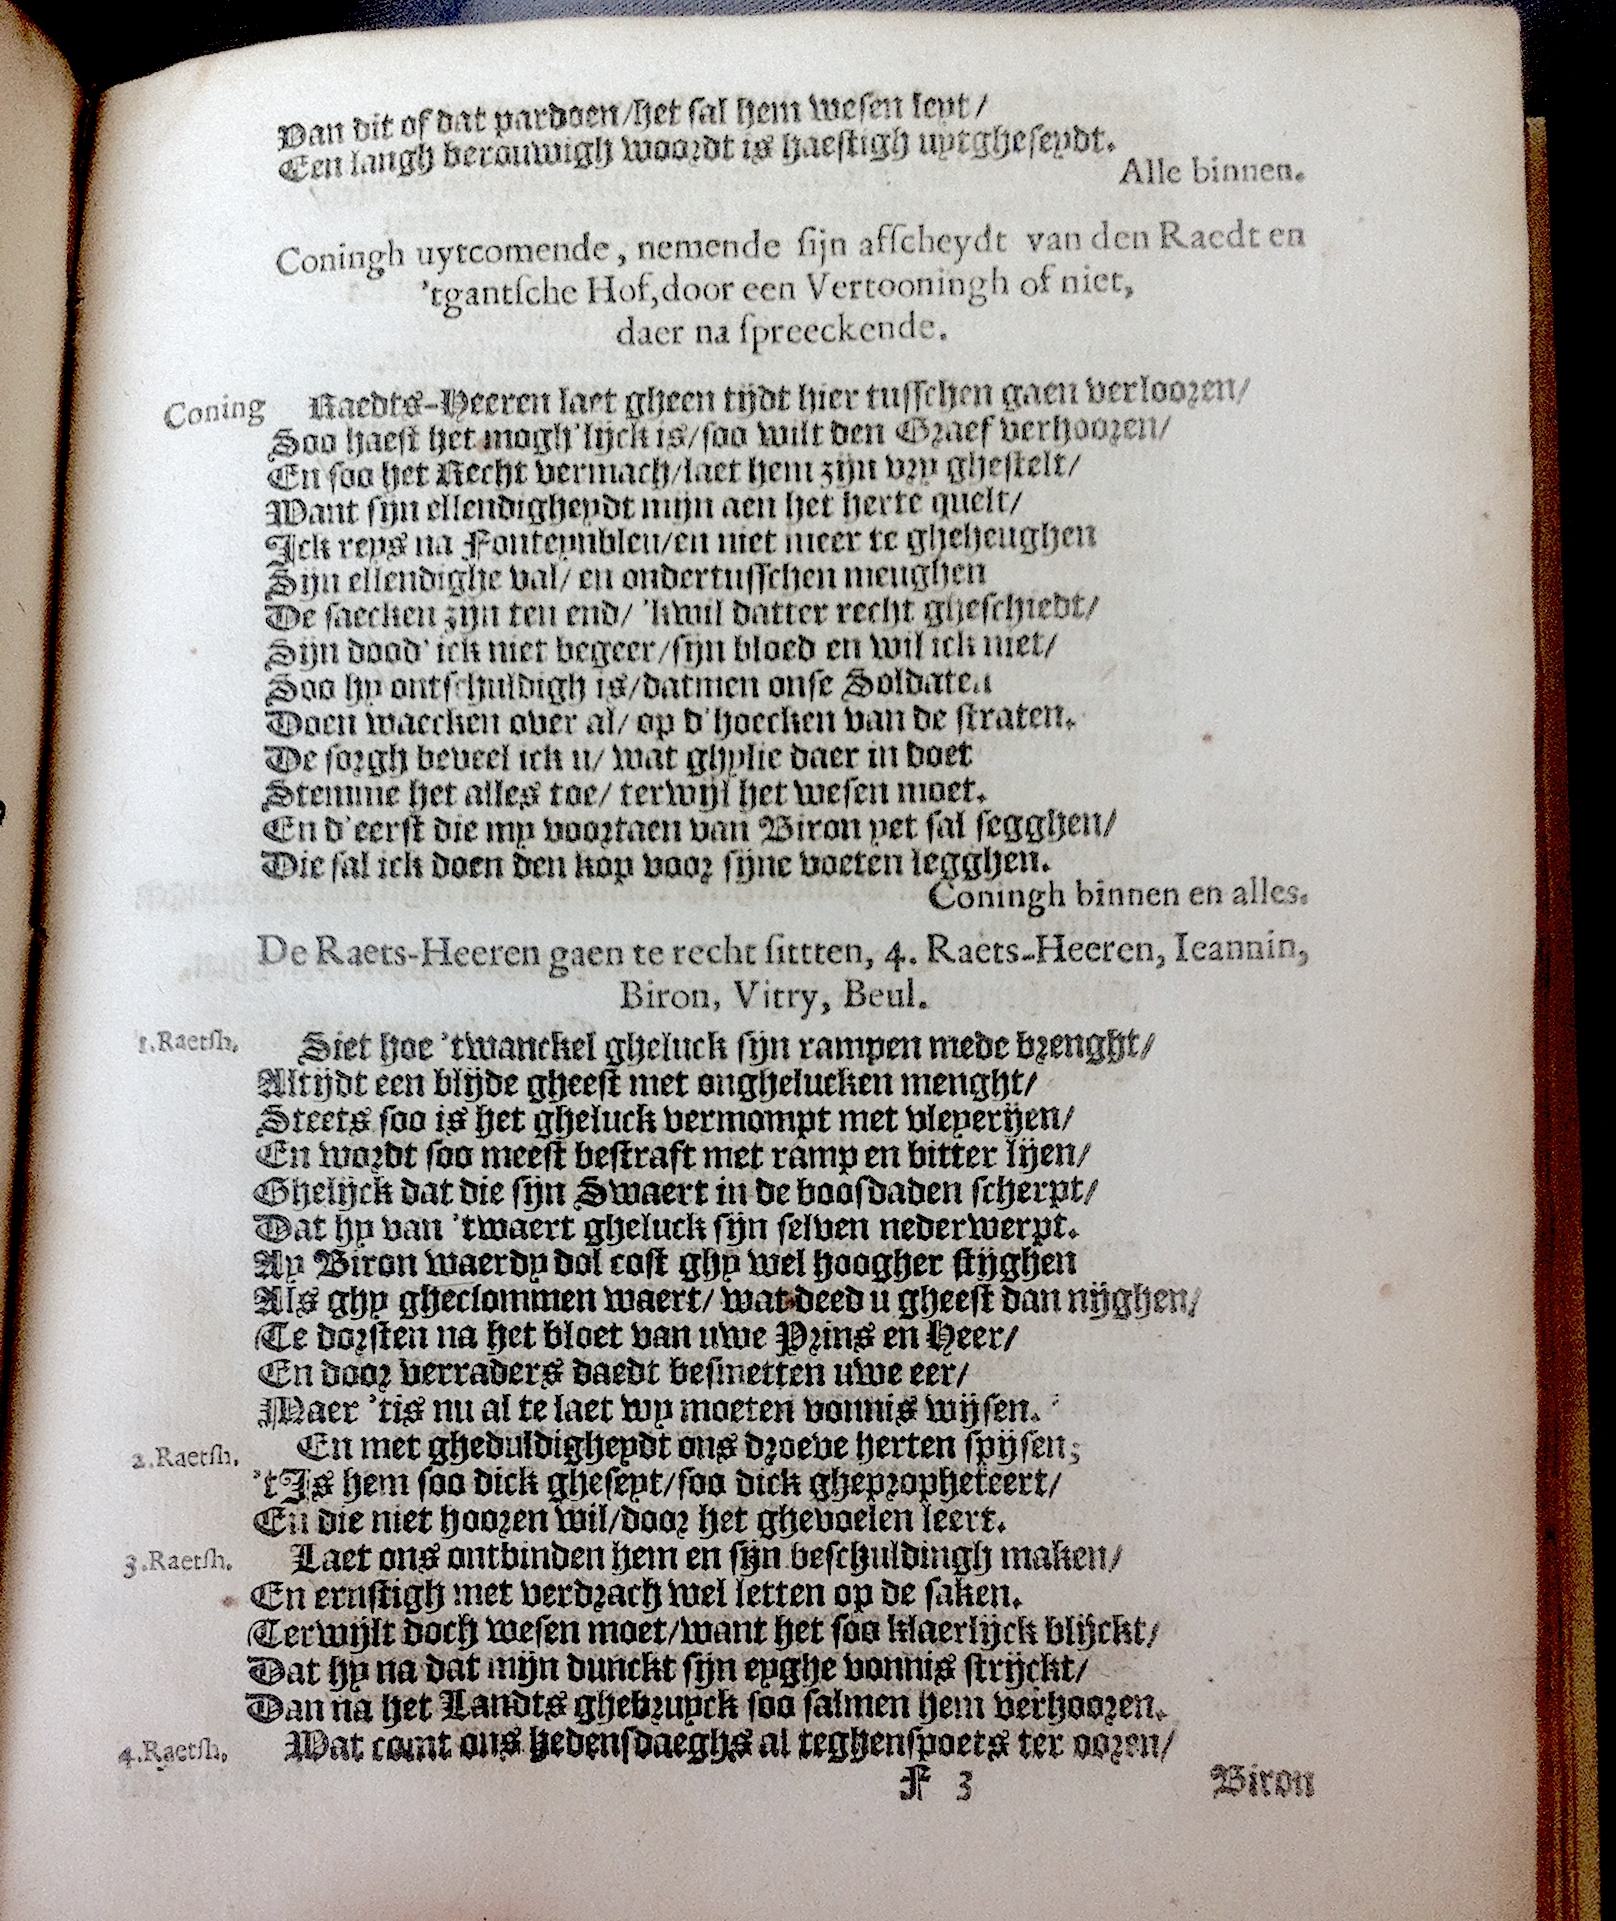 Van dit of dat pardoen/het sal hem wesen leyt/
Een langh berouwigh woordt is haestigh uytgheseydt.
Alle binnen.
Coningh uytcomende, nemende sijn affcheydt van den Raedt en
'tgantsche Hof,door een Vertooningh of niet,
daer na spreeckende.
Coning Raedts-Heeren laet gheen tijdt hier tusschen gaen verlooren/
Soo haest het mogh'lijck is/soo wilt den Graef verhooren/
En soo het Recht vermach/laet hem zijn vry ghestelt/
Want sijn ellendigheydt mijn aen het herte quelt/
Ick reys na Fonteynbleu/en niet meer te gheheughen
Sijn ellendighe val/ en ondertusschen meughen
De saecken zijn ten end/ 'kwil datter recht gheschiedt/
Sijn dood' ick niet begeer/sijn bloed en wil ick niet/
Soo hy ontschuldigh is/datmen onse Soldaten
Doen waecken over al/ op d'hoecken van de straten.
De sorgh beveel ick u/ wat ghylie daer in doet
Stemme het alles toe/ terwijl het wesen moet.
En d'eerst die my voortaen van Biron yet sal segghen/
Die sal ick doen den kop voor sijne voeten legghen.
Coningh binnen en alles.
De Raets-Heeren gaen te recht sittten, 4. Raets-Heeren, Ieannin,
Biron, Vitry, Beul.
1.Raetsh. Siet hoe 'twanckel gheluck sijn rampen mede brenght/
Altijdt een blijde gheest met onghelucken menght/
Steets soo is het gheluck vermompt met vleyerijen/
En wordt soo meest bestraft met ramp en bitter lijen/
Ghelijck dat die sijn Swaert in de boosdaden scherpt/
Dat hy van 'twaert gheluck sijn selven nederwerpt.
Ay Biron waerdy dol cost ghy wel hoogher stijghen
Als ghy gheclommen waert/ wat deed u gheest dan nijghen/
Te dorsten na het bloet van uwe Prins en Heer/
En door verraders daedt besmetten uwe eer/
Maer 'tis nu al te laet wy moeten vonnis wijsen.
2.Raetsh. En met gheduldigheydt ons droeve herten spijsen;
'tIs hem soo dick gheseyt/soo dick ghepropheteert/
En die niet hooren wil/door het ghevoelen leert.
3.Raetsh. Laet ons ontbinden hem en sijn beschuldingh maken/
En ernstigh met verdrach wel letten op de saken.
Terwijlt doch wesen moet/want het soo klaerlijck blijckt/
Dat hy na dat mijn dunckt sijn eyghe vonnis strijckt/
Dan na het Landts ghebruyck soo salmen hem verhooren.
4.Raetsh. Wat comt ons hedensdaeghs al teghenspoets ter ooren/
F 3 Biron